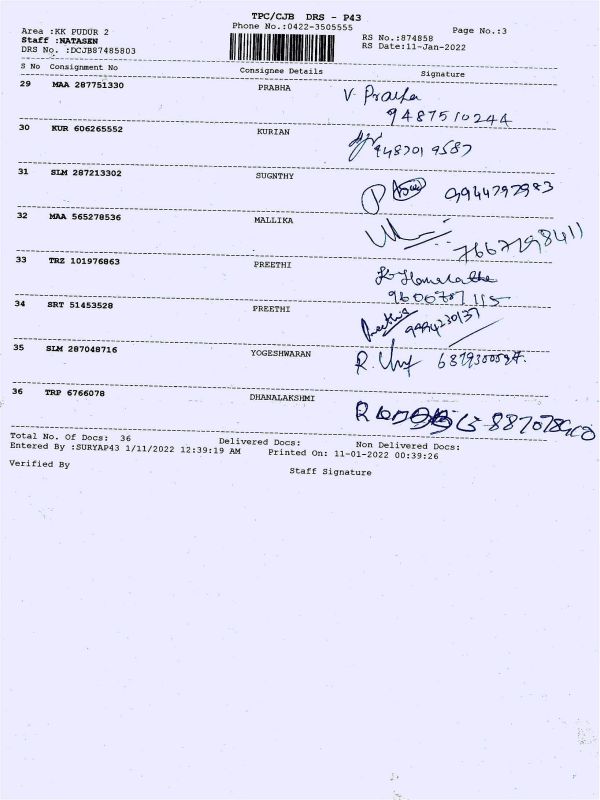 TPC/CJB DRS - P43
Phone No.:0422-3505555
Page No.:3
Area :KK PUDUR 2
Staff :NATASEN
DRS No. :DCJB87485803
RS No.:874858
RS Date:11-Jan-2022
S No Consignment No Consignee Details Signature
29 MAA 287751330 PRABHA V. Prabha
9487510244
30 KUR 606265552 KURIAN 9487019587
31 SLM 287213302 SUGNTHY 9944797983
32 MAA 565278536 MALLIKA
33 TRZ 101976863 PREETHI
34 SRT 51453528 PREETHI Preethi
9994230137
35 SLM 287048716 YOGESHWARAN R.
36 TRP 6766078 DHANALAKSHMI R
Total No. Of Docs: 36 Delivered Docs: Non Delivered Docs:
Entered By :SURYAP43 1/11/2022 12:39:19 AM Printed On: 11-01-2022 00:39:26
Verified By Staff Signature